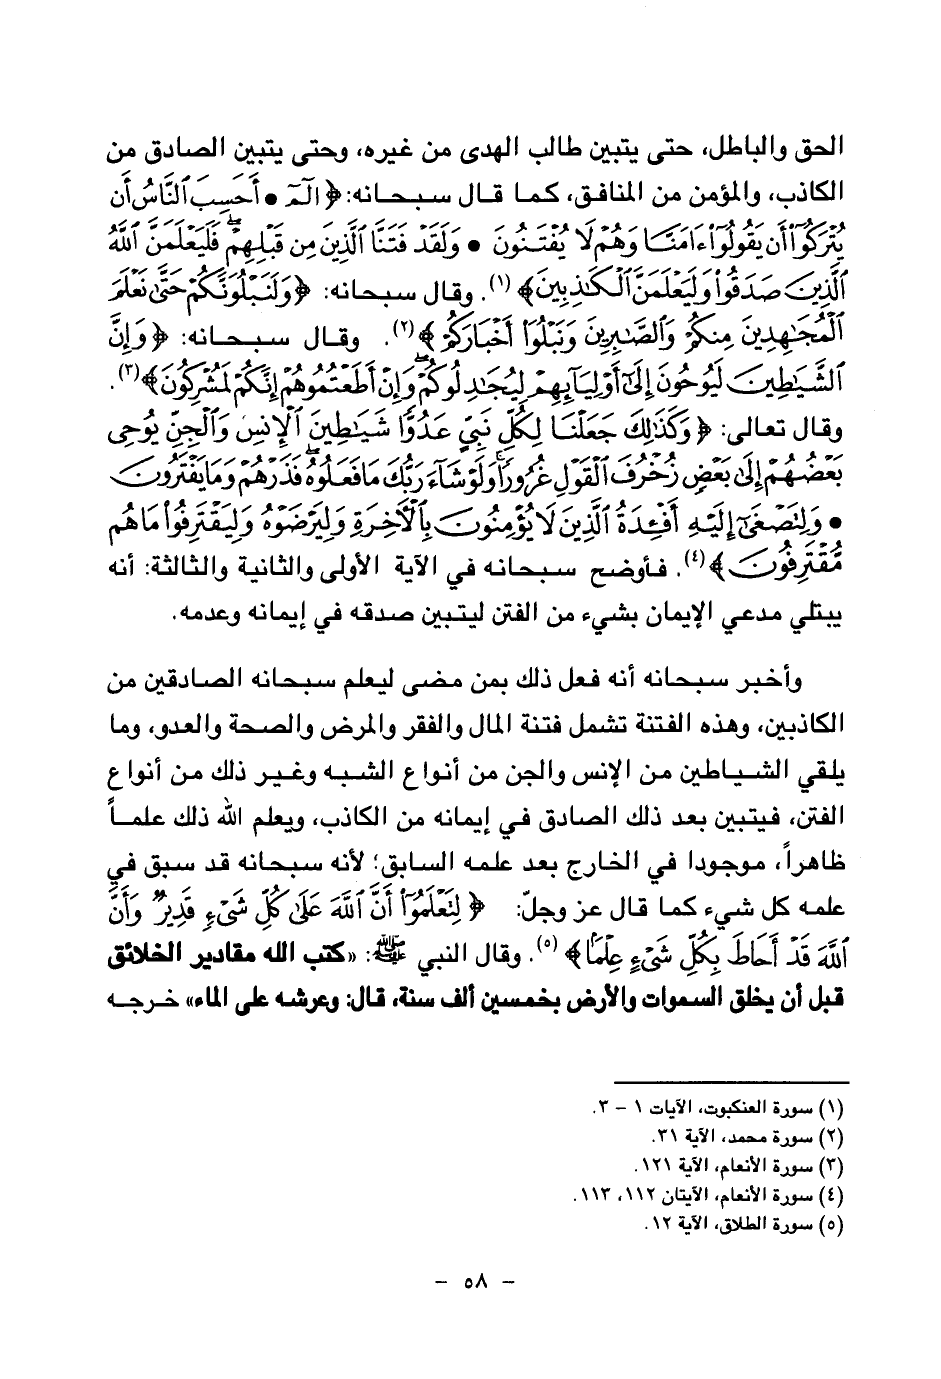 الحق والباطل، حتى يتبين طالب الهدى من غيره، وحتى يتبين الصادق من
الكاذب، والمؤمن من المنافق، كما قال سبحانه: ﴿الٓمٓ • أَحَسِبَ ٱلنَّاسُ أَن
يُتْرَكُوٓا۟ أَن يَقُولُوٓا۟ ءَامَنَّا وَهُمْ لَا يُفْتَنُونَ • وَلَقَدْ فَتَنَّا ٱلَّذِينَ مِن قَبْلِهِمْ ۖ فَلَيَعْلَمَنَّ ٱللَّهُ
ٱلَّذِينَ صَدَقُوا۟ وَلَيَعْلَمَنَّ ٱلْكَٰذِبِينَ﴾(١). وقال سبحانه: ﴿وَلَنَبْلُوَنَّكُمْ حَتَّىٰ نَعْلَمَ
ٱلْمُجَٰهِدِينَ مِنكُمْ وَٱلصَّٰبِرِينَ وَنَبْلُوَا۟ أَخْبَارَكُمْ﴾(٢). وقال سبحانه: ﴿وَإِنَّ
ٱلشَّيَٰطِينَ لَيُوحُونَ إِلَىٰٓ أَوْلِيَآئِهِمْ لِيُجَٰدِلُوكُمْ ۖ وَإِنْ أَطَعْتُمُوهُمْ إِنَّكُمْ لَمُشْرِكُونَ﴾(٣).
وقال تعالى: ﴿وَكَذَٰلِكَ جَعَلْنَا لِكُلِّ نَبِىٍّ عَدُوًّا شَيَٰطِينَ ٱلْإِنسِ وَٱلْجِنِّ يُوحِى
بَعْضُهُمْ إِلَىٰ بَعْضٍ زُخْرُفَ ٱلْقَوْلِ غُرُورًا ۚ وَلَوْ شَآءَ رَبُّكَ مَا فَعَلُوهُ ۖ فَذَرْهُمْ وَمَا يَفْتَرُونَ
• وَلِتَصْغَىٰٓ إِلَيْهِ أَفْـِٔدَةُ ٱلَّذِينَ لَا يُؤْمِنُونَ بِٱلْءَاخِرَةِ وَلِيَرْضَوْهُ وَلِيَقْتَرِفُوا۟ مَا هُم
مُّقْتَرِفُونَ﴾(٤). فأوضح سبحانه في الآية الأولى والثانية والثالثة: أنه
يبتلي مدعي الإيمان بشيء من الفتن ليتبين صدقه في إيمانه وعدمه.
وأخبر سبحانه أنه فعل ذلك بمن مضى ليعلم سبحانه الصادقين من
الكاذبين، وهذه الفتنة تشمل فتنة المال والفقر والمرض والصحة والعدو، وما
يلقي الشياطين من الإنس والجن من أنواع الشبه وغير ذلك من أنواع
الفتن، فيتبين بعد ذلك الصادق في إيمانه من الكاذب، ويعلم الله ذلك علماً
ظاهراً، موجودا في الخارج بعد علمه السابق؛ لأنه سبحانه قد سبق في
علمه كل شيء كما قال عز وجلّ: ﴿لِتَعْلَمُوٓا۟ أَنَّ ٱللَّهَ عَلَىٰ كُلِّ شَىْءٍ قَدِيرٌ وَأَنَّ
ٱللَّهَ قَدْ أَحَاطَ بِكُلِّ شَىْءٍ عِلْمًۢا﴾(٥). وقال النبي ﷺ: «كتب الله مقادير الخلائق
قبل أن يخلق السموات والأرض بخمسين ألف سنة، قال: وعرشه على الماء» خرجه
(١) سورة العنكبوت، الآيات ١ – ٣.
(٢) سورة محمد، الآية ٣١.
(٣) سورة الأنعام، الآية ١٢١.
(٤) سورة الأنعام، الآيتان ١١٢، ١١٣.
(٥) سورة الطلاق، الآية ١٢.
– ٥٨ –